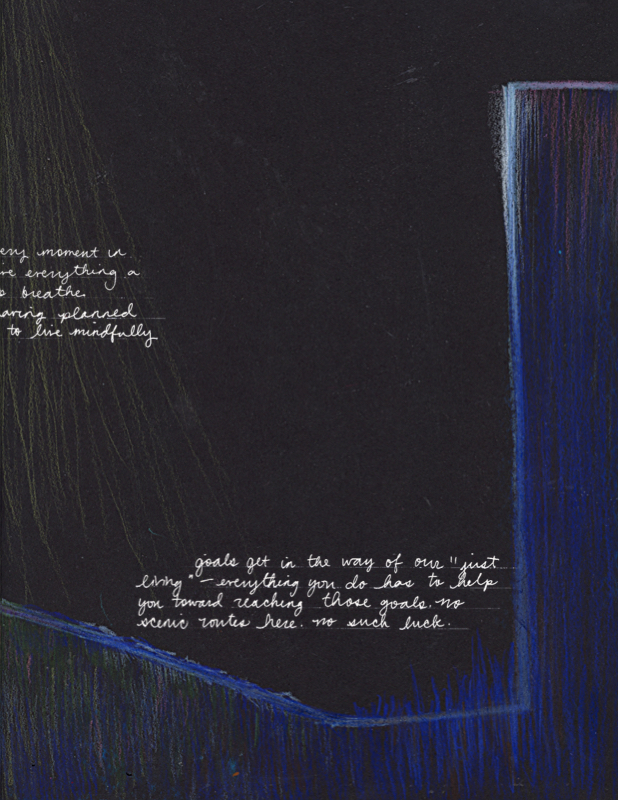 moment in
everything a
breathe.
planned
to live mindfully
goals get in the way of our "just
living" – everything you do has to help
you toward reaching those goals. no
scenic routes here. no such luck.